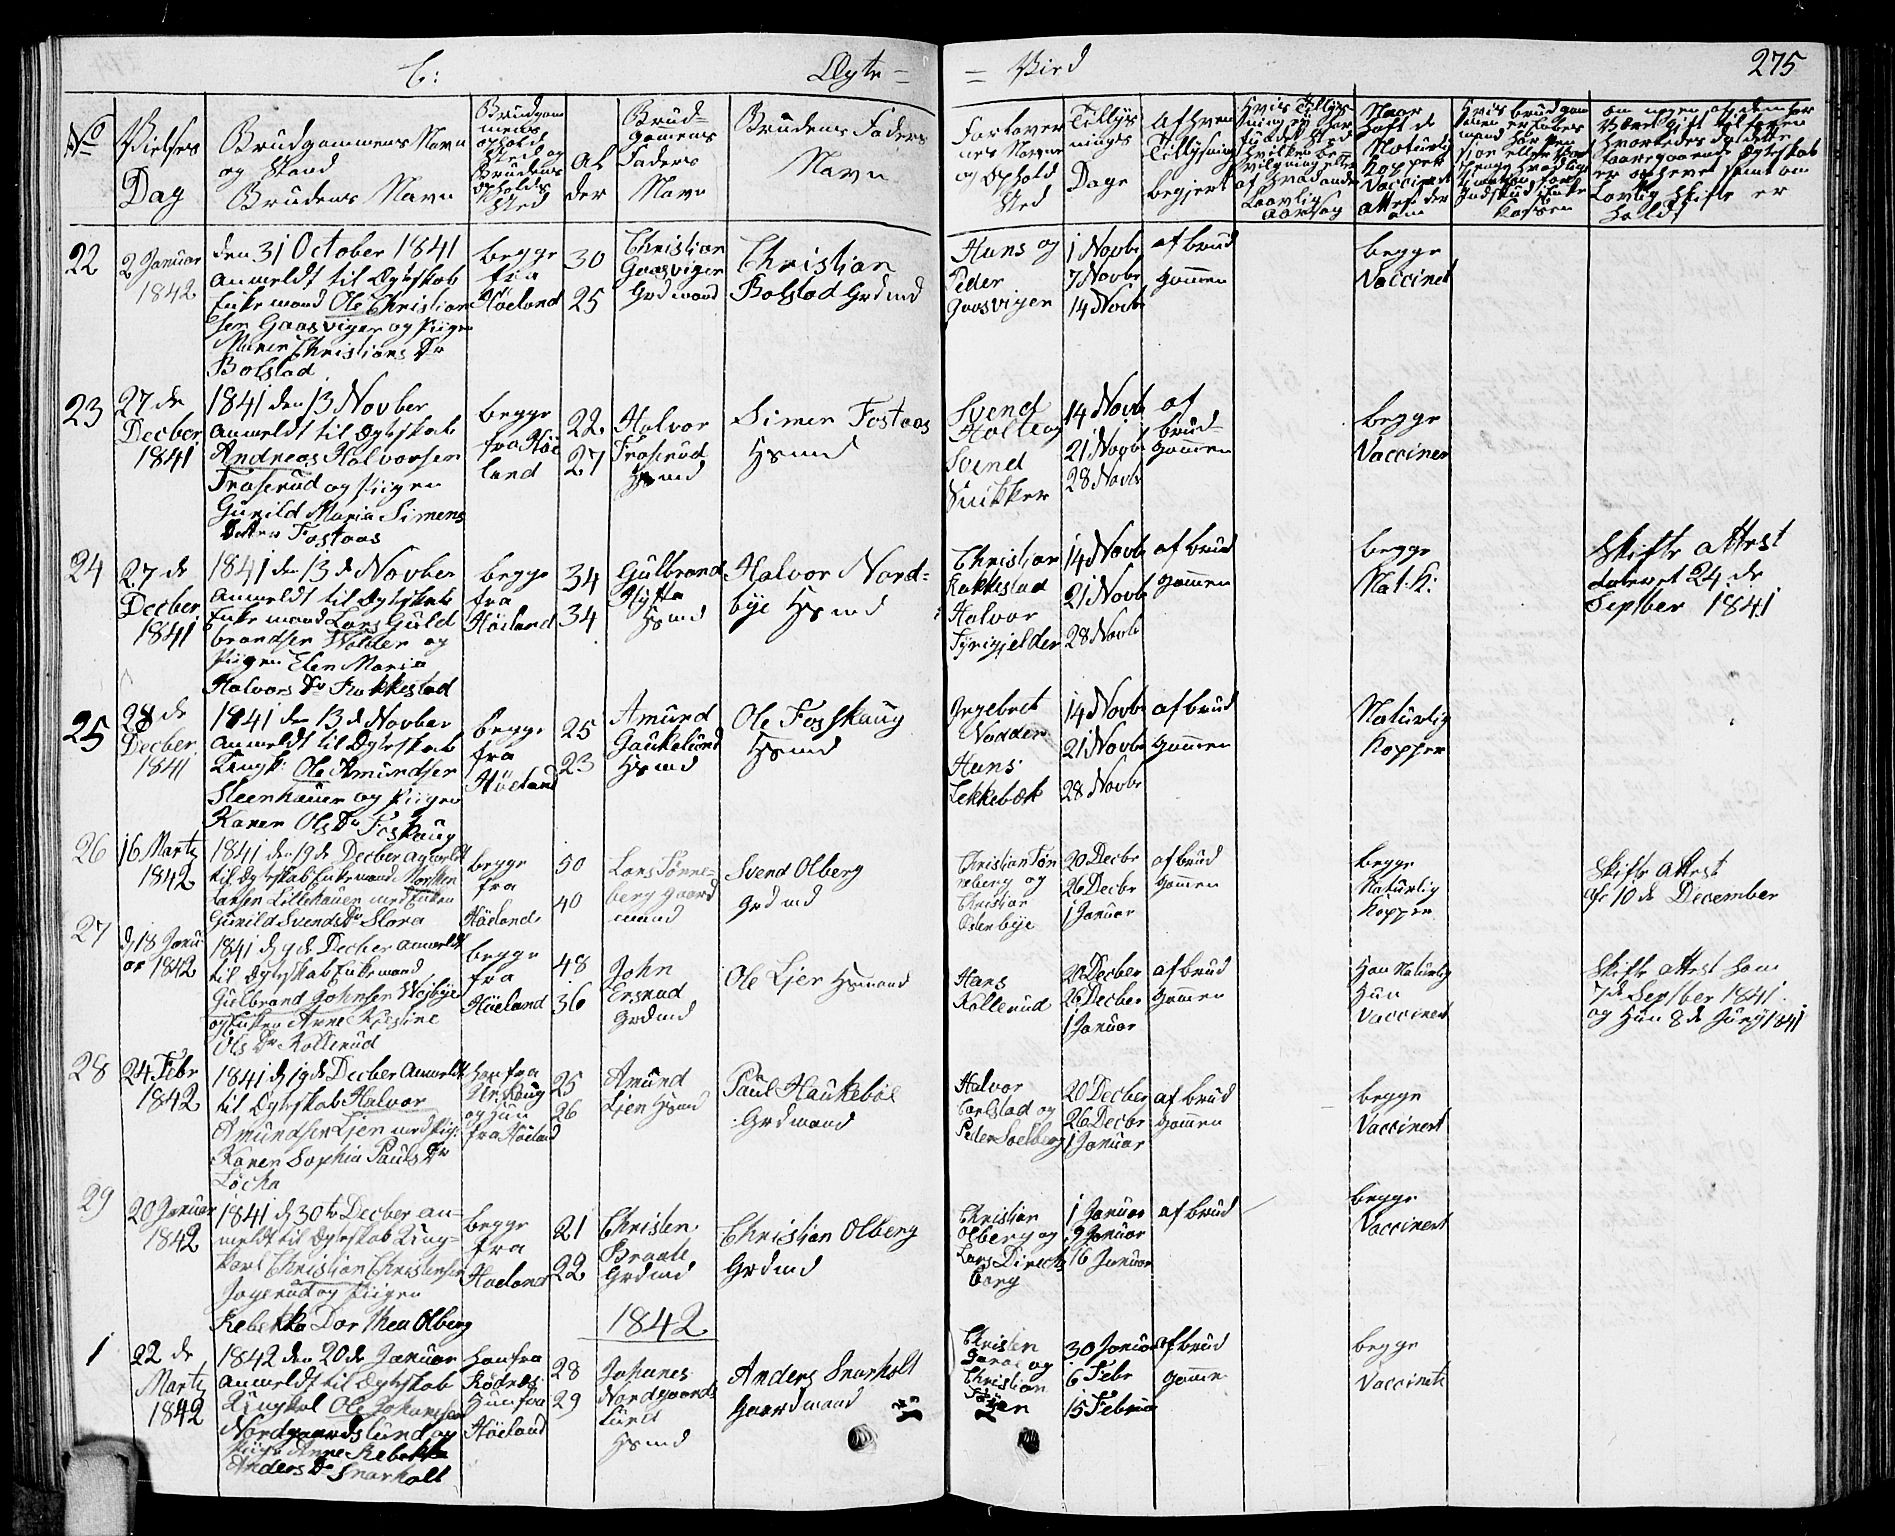 C:
Ægte =
= Vied
275
No
Vielses
Dag
Brudgammens Navn
og Stand
Brudens Navn
Brudgam
menes
ophol
Sted og
Brudens
Opholds
Sted
Al
der
Brud=
gamens
Faders
Navn
Brudens Faders
Navn
Forlover
nes Navne
og Ophold
Sted
Tillys
nings
Dage
Af hvem
Tillysning
begjert
Naar
haft de
Naturlig
Kopper
Vaccineret
22
2 Januar
1842
den 31 October 1841
Anmeldt til Ægteskab
Enkemand Ole Christian
sen Gaasviger og Piigen
Maren Christians Dr
Bolstad
begge
fra
Höeland
30
25
Christian
Gaasviger
Grdmand
Christian
Bolstad Grdmd
Hans og
Peder
Gaasviger
1 Novbr
7 Novbr
14 Novbr
af brud
gammen
begge
Vaccineret
23
27 de
Decber
1841
1841 den 13 Novber
Anmeldt til Ægteskab
Andreas Halvorsen
Fraserud og Piigen
Gunild Maria Simens
Datter Fostaas
begge
fra Höe
land
22
27
Halvor
Fraserud
Hsmd
Simen Fostaas
Hsmd
Svend
Holt og
Svend
Snikker
14 Novb
21 Novb
28 Novbr
af
brud=
gammen
begge
Vaccineret
24
27 de
Decber
1841
1841 den 13 de Novber
Anmeldt til Ægteskab
Enkemand Lars Guld
brandsen Wolder og
Piigen Elen Maria
Halvors Dr Rakkestad
begge
fra
Höeland
34
34
Gulbrand
Hytta
Hsmd
Halvor Nord=
bye Hsmd
Christian
Rakkestad
Halvor
Fyrigjelder
14 Novb
21 Novb
28 Novb
af brud
gammen
begge
Nat. K:
Skifte Attest
dateret 24 de
Septber 1841
25
28 de
Decber
1841
1841 den 13 d Novber
Anmeldt til Ægteskab
Ungk: Ole Amundsen
Steenhauer og Piigen
Karen Ols Dr Foskaug
begge
fra
Höeland
25
23
Amund
Gaukelund
Hsmd
Ole Fosskaug
Hsmd
Ingebret
Nadder
Hans
Lekkebæk
14 Novbr
21 Novbr
28 Novbr
af brud
gammen
Naturlig
Kopper
26
16 Marty
1842
1841 den 19 de Decber Anmeldt
til Ægteskab Enkemand
Larsen Lillehauer med Enken
Gunild Svends Dr Slora
begge
fra
Höeland
50
40
Lars Tönne=
berg gaard
mand
Svend Olberg
Grdmd
Christian Tön
neberg og
Christian
Osterbye
20 Decbr
26 Decbr
1 Januar
af brud
gammen
begge
Naturlig
Kopper
Skifte Attest
af 10 de December
27
d 18 Janu
ar 1842
1841 d 19 de Decber Anmeldt
til Ægteskab Enkemand
Gulbrand Johnsen Westbye
og Enken Anne Kjestine
Ols Dr Kollerud
begge
fra
Höeland
48
36
John
Ersrud
Grdmd
Ole Lien Hsmand
Hans
Kollerud
20 Decber
26 Decber
1 Januar
af brud
gammen
Han Naturlig
Hun
Vaccineret
Skifte Attest ham
7de Septber 1841
og Hun 8 de Juny 1841
28
24 Febr
1842
1841 d 19 de Decber Anmeldt
til Ægteskab Halvor
Amundsen Lien med Pige
Karen Sophia Pauls Dr
Löcka
Han fra
Urskoug
og Hun
fra Höeland
25
26
Amund
Lien Hsmd
Paul Haukeböl
Grdmand
Halvor
Carlstad og
Peder Soelberg
20 Decber
26 Decbr
1 Januar
af brud
gammen
begge
Vaccineret
29
20 Januar
1842
1841 d 30te Decber an=
meldt til Ægteskab Ung=
karl Christian Christensen
Jogerud og Piigen
Rebekka Dorthea Olberg
begge
fra
Höeland
21
22
Christen
Braate
Grdmd
Christian Olberg
Grdmd
Christian
Olberg og
Lars
1 Januar
9 Januar
16 Januar
af brud
begge
Vaccineret
1842
1
22 de
Marty
1842
1842 den 20 de Januar
Anmeldt til Ægteskab
Ungkal Ole Johansen
Nordgaardslund og
Piige Anne Rebekka
Anders Dr Snarholt
Han fra
Rödnæs
Hun fra
Höeland
28
29
Johanes
Nordgaards
lund
Hsmd
Anders Snarholt
Gaardmand
Christen
og
Christian
30 Januar
6 Febr
15 Februa
af brud
gamme
begge
Vaccineret